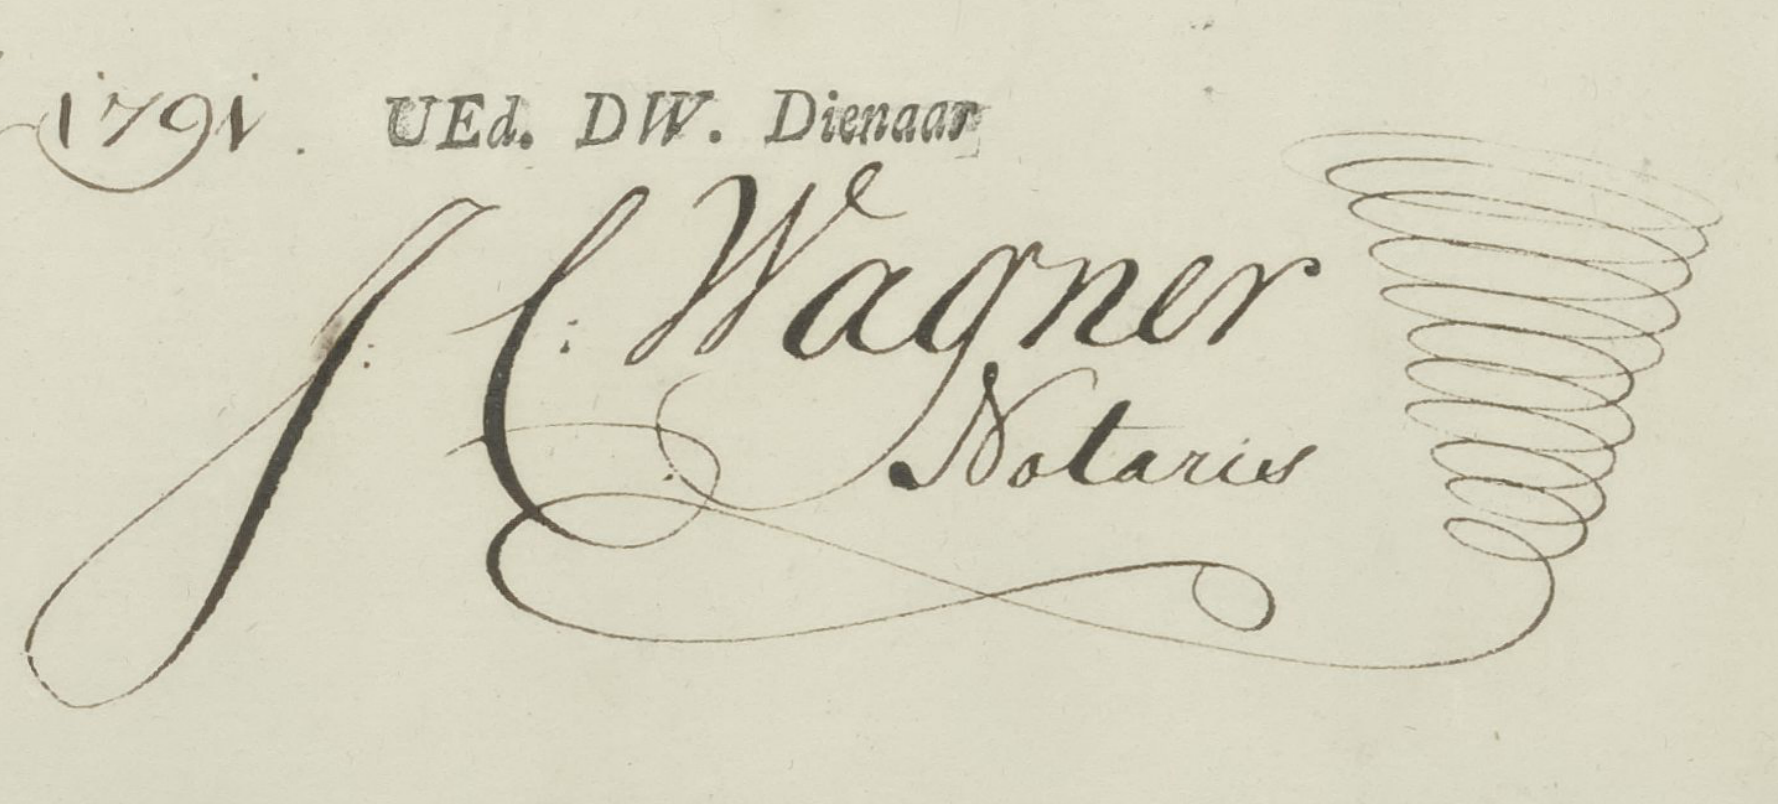 1791. UEd. DW. Dienaar
J: C: Wagner
Notaris